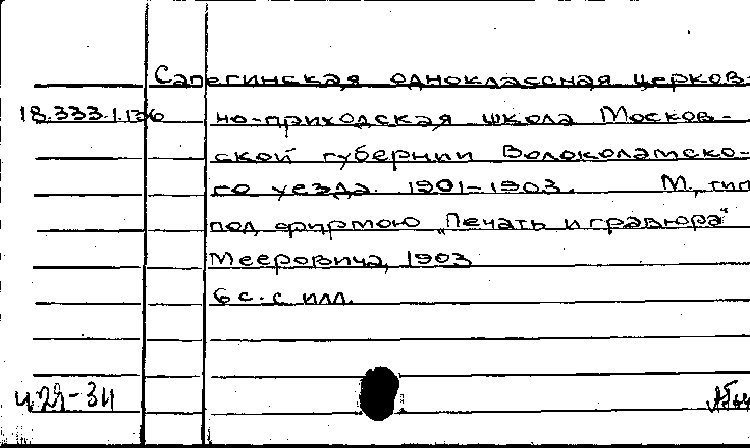 Сапегинская одноклассная церков-
18.333.1.136 но-приходская школа Москов-
ской губернии Волоколамско-
го уезда. 1901-1903. М., тип
под фирмою „Печать и гравюра"
Мееровича, 1903
6 с. с илл.